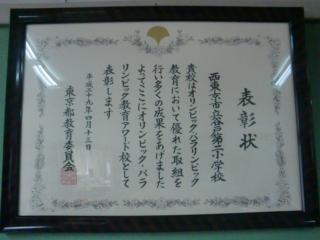 表彰状
西東京市立谷戸第二小学校
貴校はオリンピック・パラリンピック
教育において優れた取組を
行い多くの成果をあげました
よってここにオリンピック・パラ
リンピック教育アワード校として
表彰します
平成二十九年四月十三日
東京都教育委員会